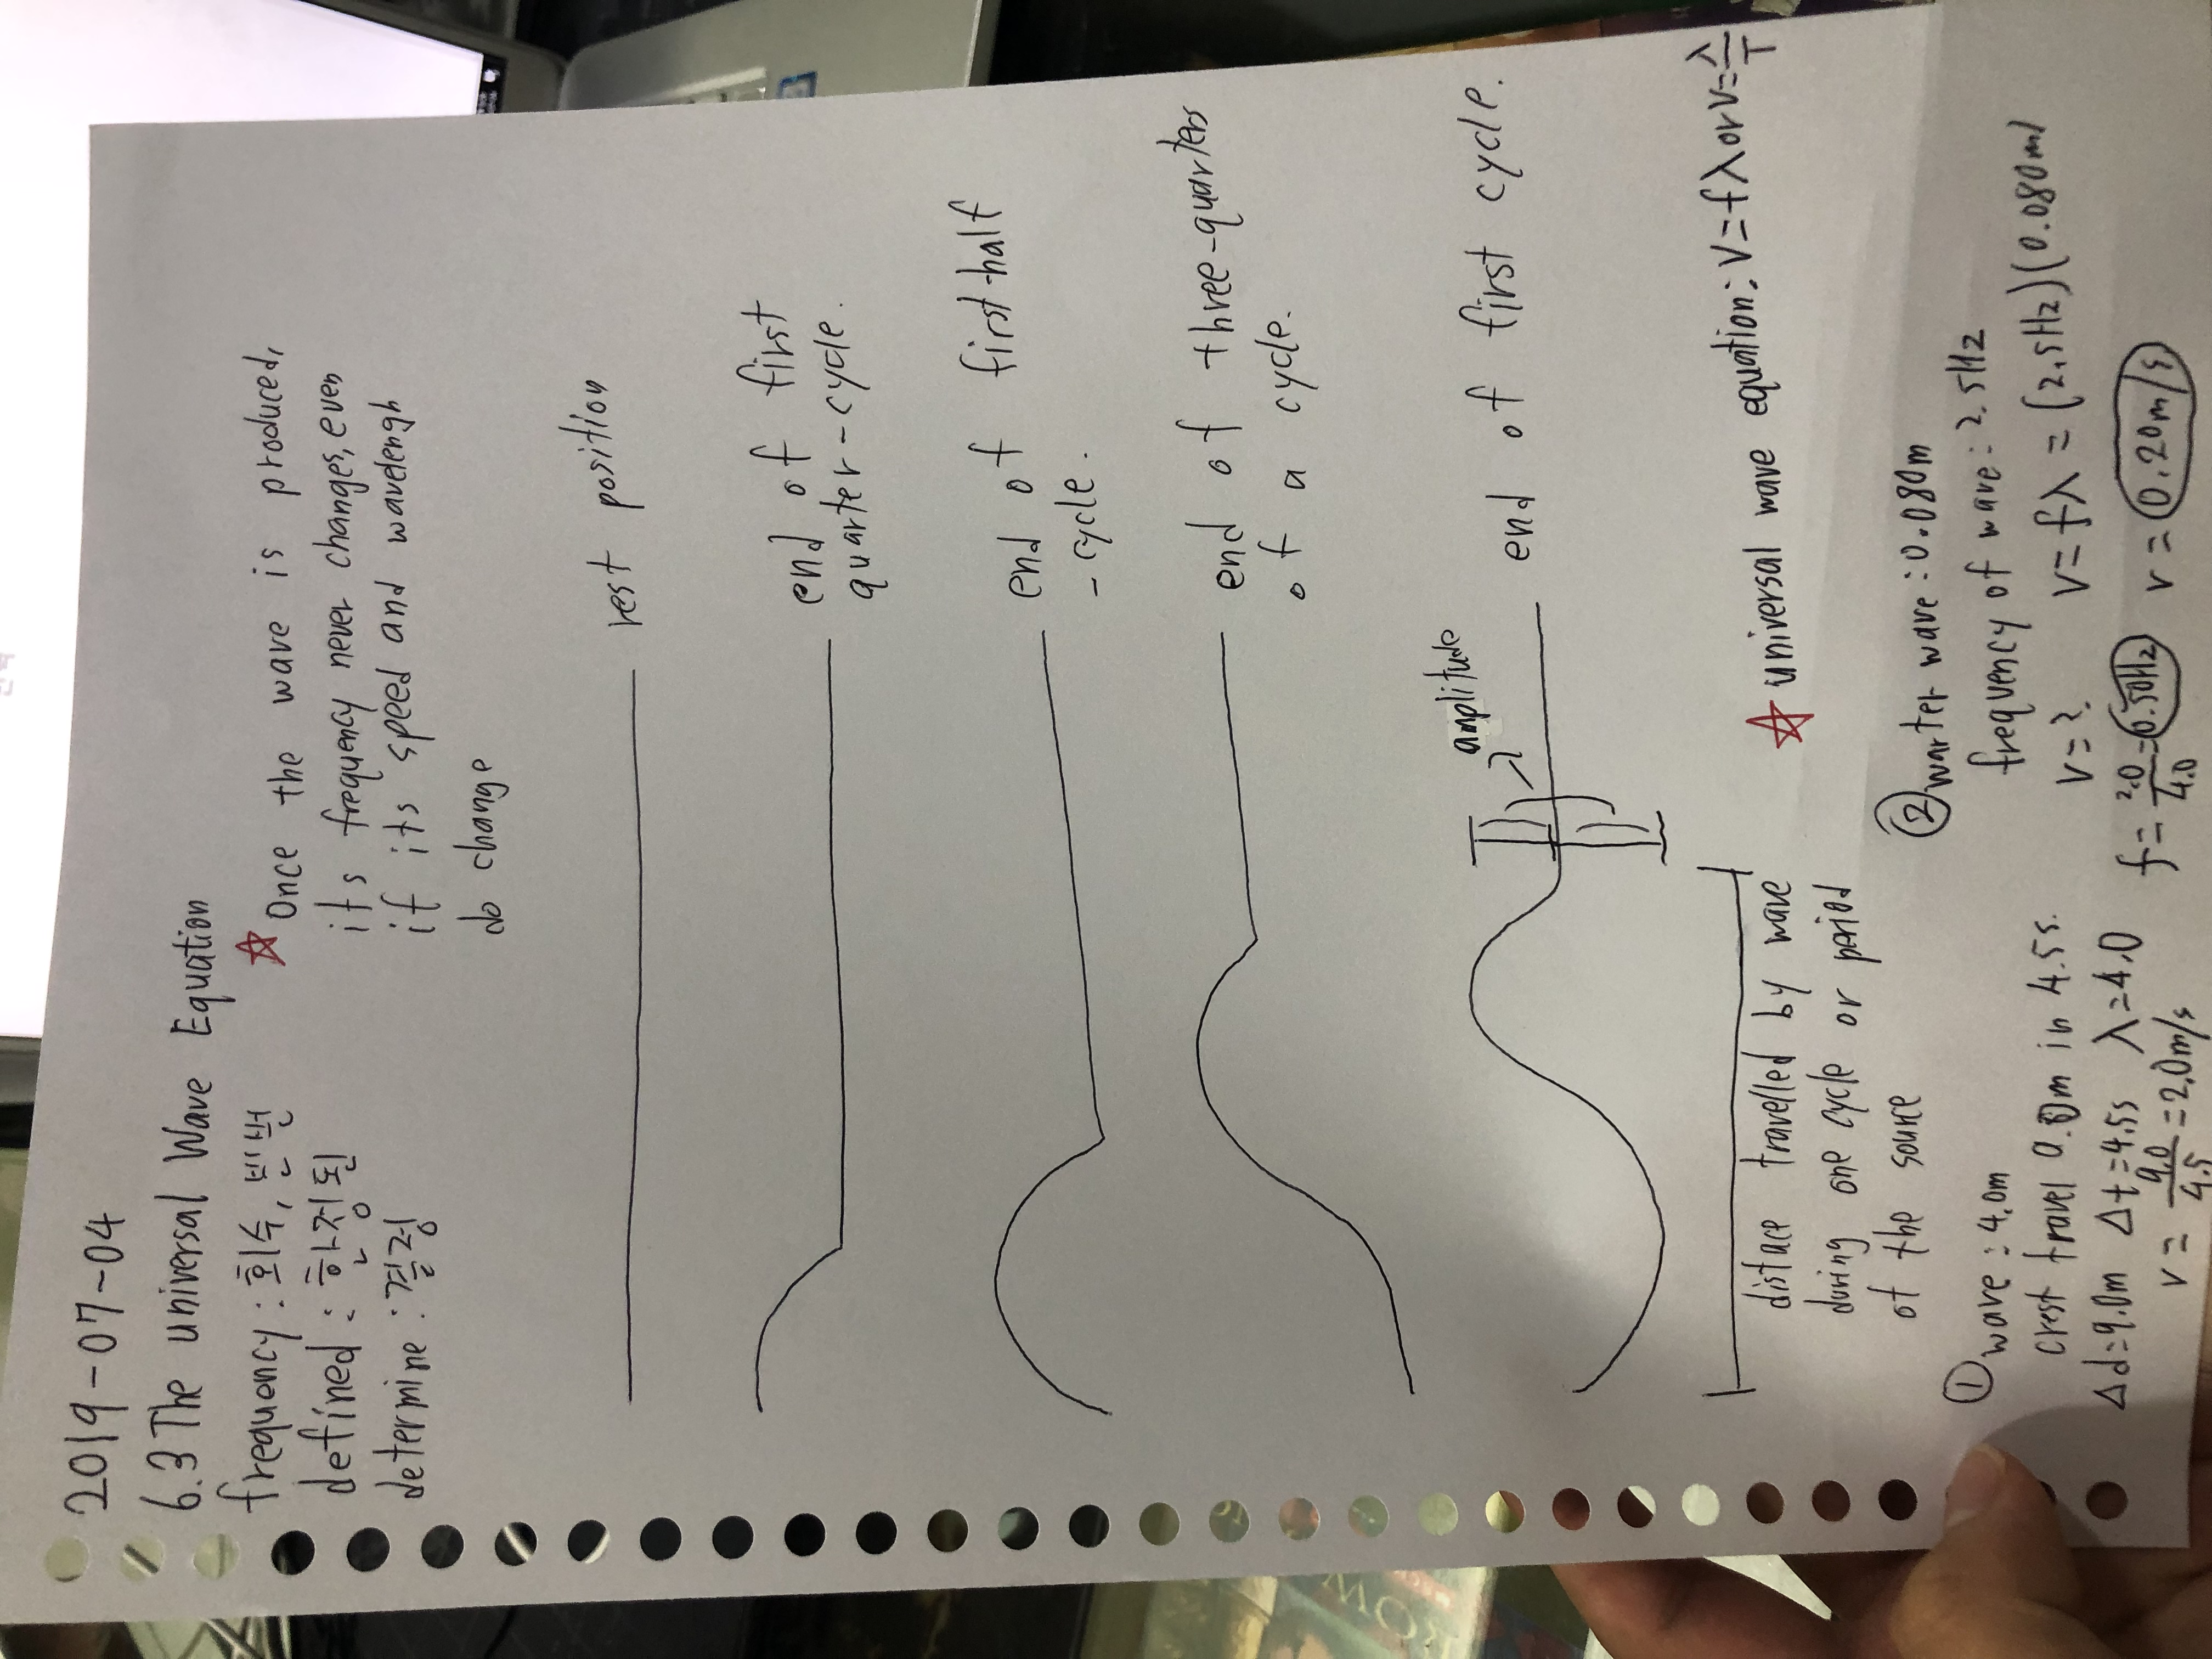 2019-07-04
6.3 The universal Wave Equation
frequency : 회수, 빈번
defined : 한정된
determine : 결정
☆ Once the wave is produced,
its frequency never changes, even
if its speed and wavelengh
do change
rest position
end of first
quarter-cycle.
end of first half
-cycle.
end of three-quarters
of a cycle.
amplitude
end of first cycle.
distace travelled by wave
during one cycle or period
of the source
☆ universal wave equation: V=fλ or V=λ/T
① wave : 4.0m
crest travel 9.0m in 4.5s.
Δd=9.0m Δt=4.5s λ=4.0
v = 9.0/4.5 = 2.0m/s
f = 2.0/4.0 = 0.50Hz
② warter wave : 0.080m
frequency of wave : 2.5Hz
V=? V=fλ = (2.5Hz)(0.080m)
v = 0.20m/s